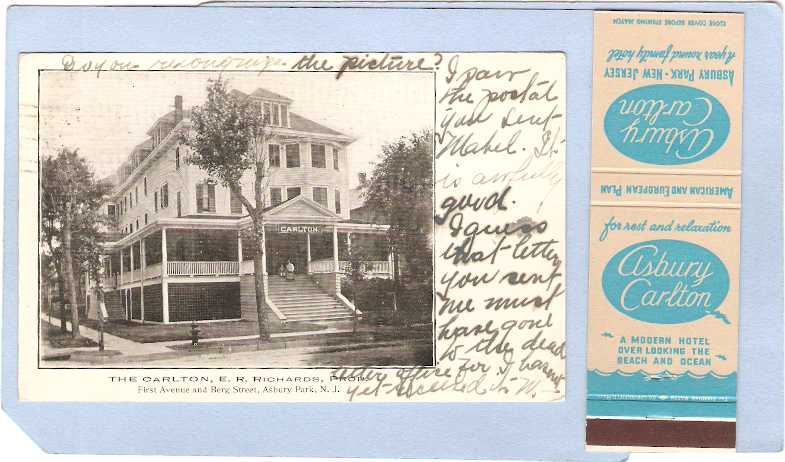 Do you recognize the picture?
I saw
the postal
you sent
Mabel. It
is awfully
good.
I guess
that letter
you sent
me must
have gone
to the dead
letter office for I havent
yet received it. M.
CARLTON
THE CARLTON, E. R. RICHARDS, PROP.
First Avenue and Berg Street, Asbury Park, N. J.
CLOSE COVER BEFORE STRIKING MATCH
A year round family hotel
ASBURY PARK • NEW JERSEY
Asbury
Carlton
AMERICAN AND EUROPEAN PLAN
for rest and relaxation
Asbury
Carlton
A MODERN HOTEL
OVER LOOKING THE
BEACH AND OCEAN